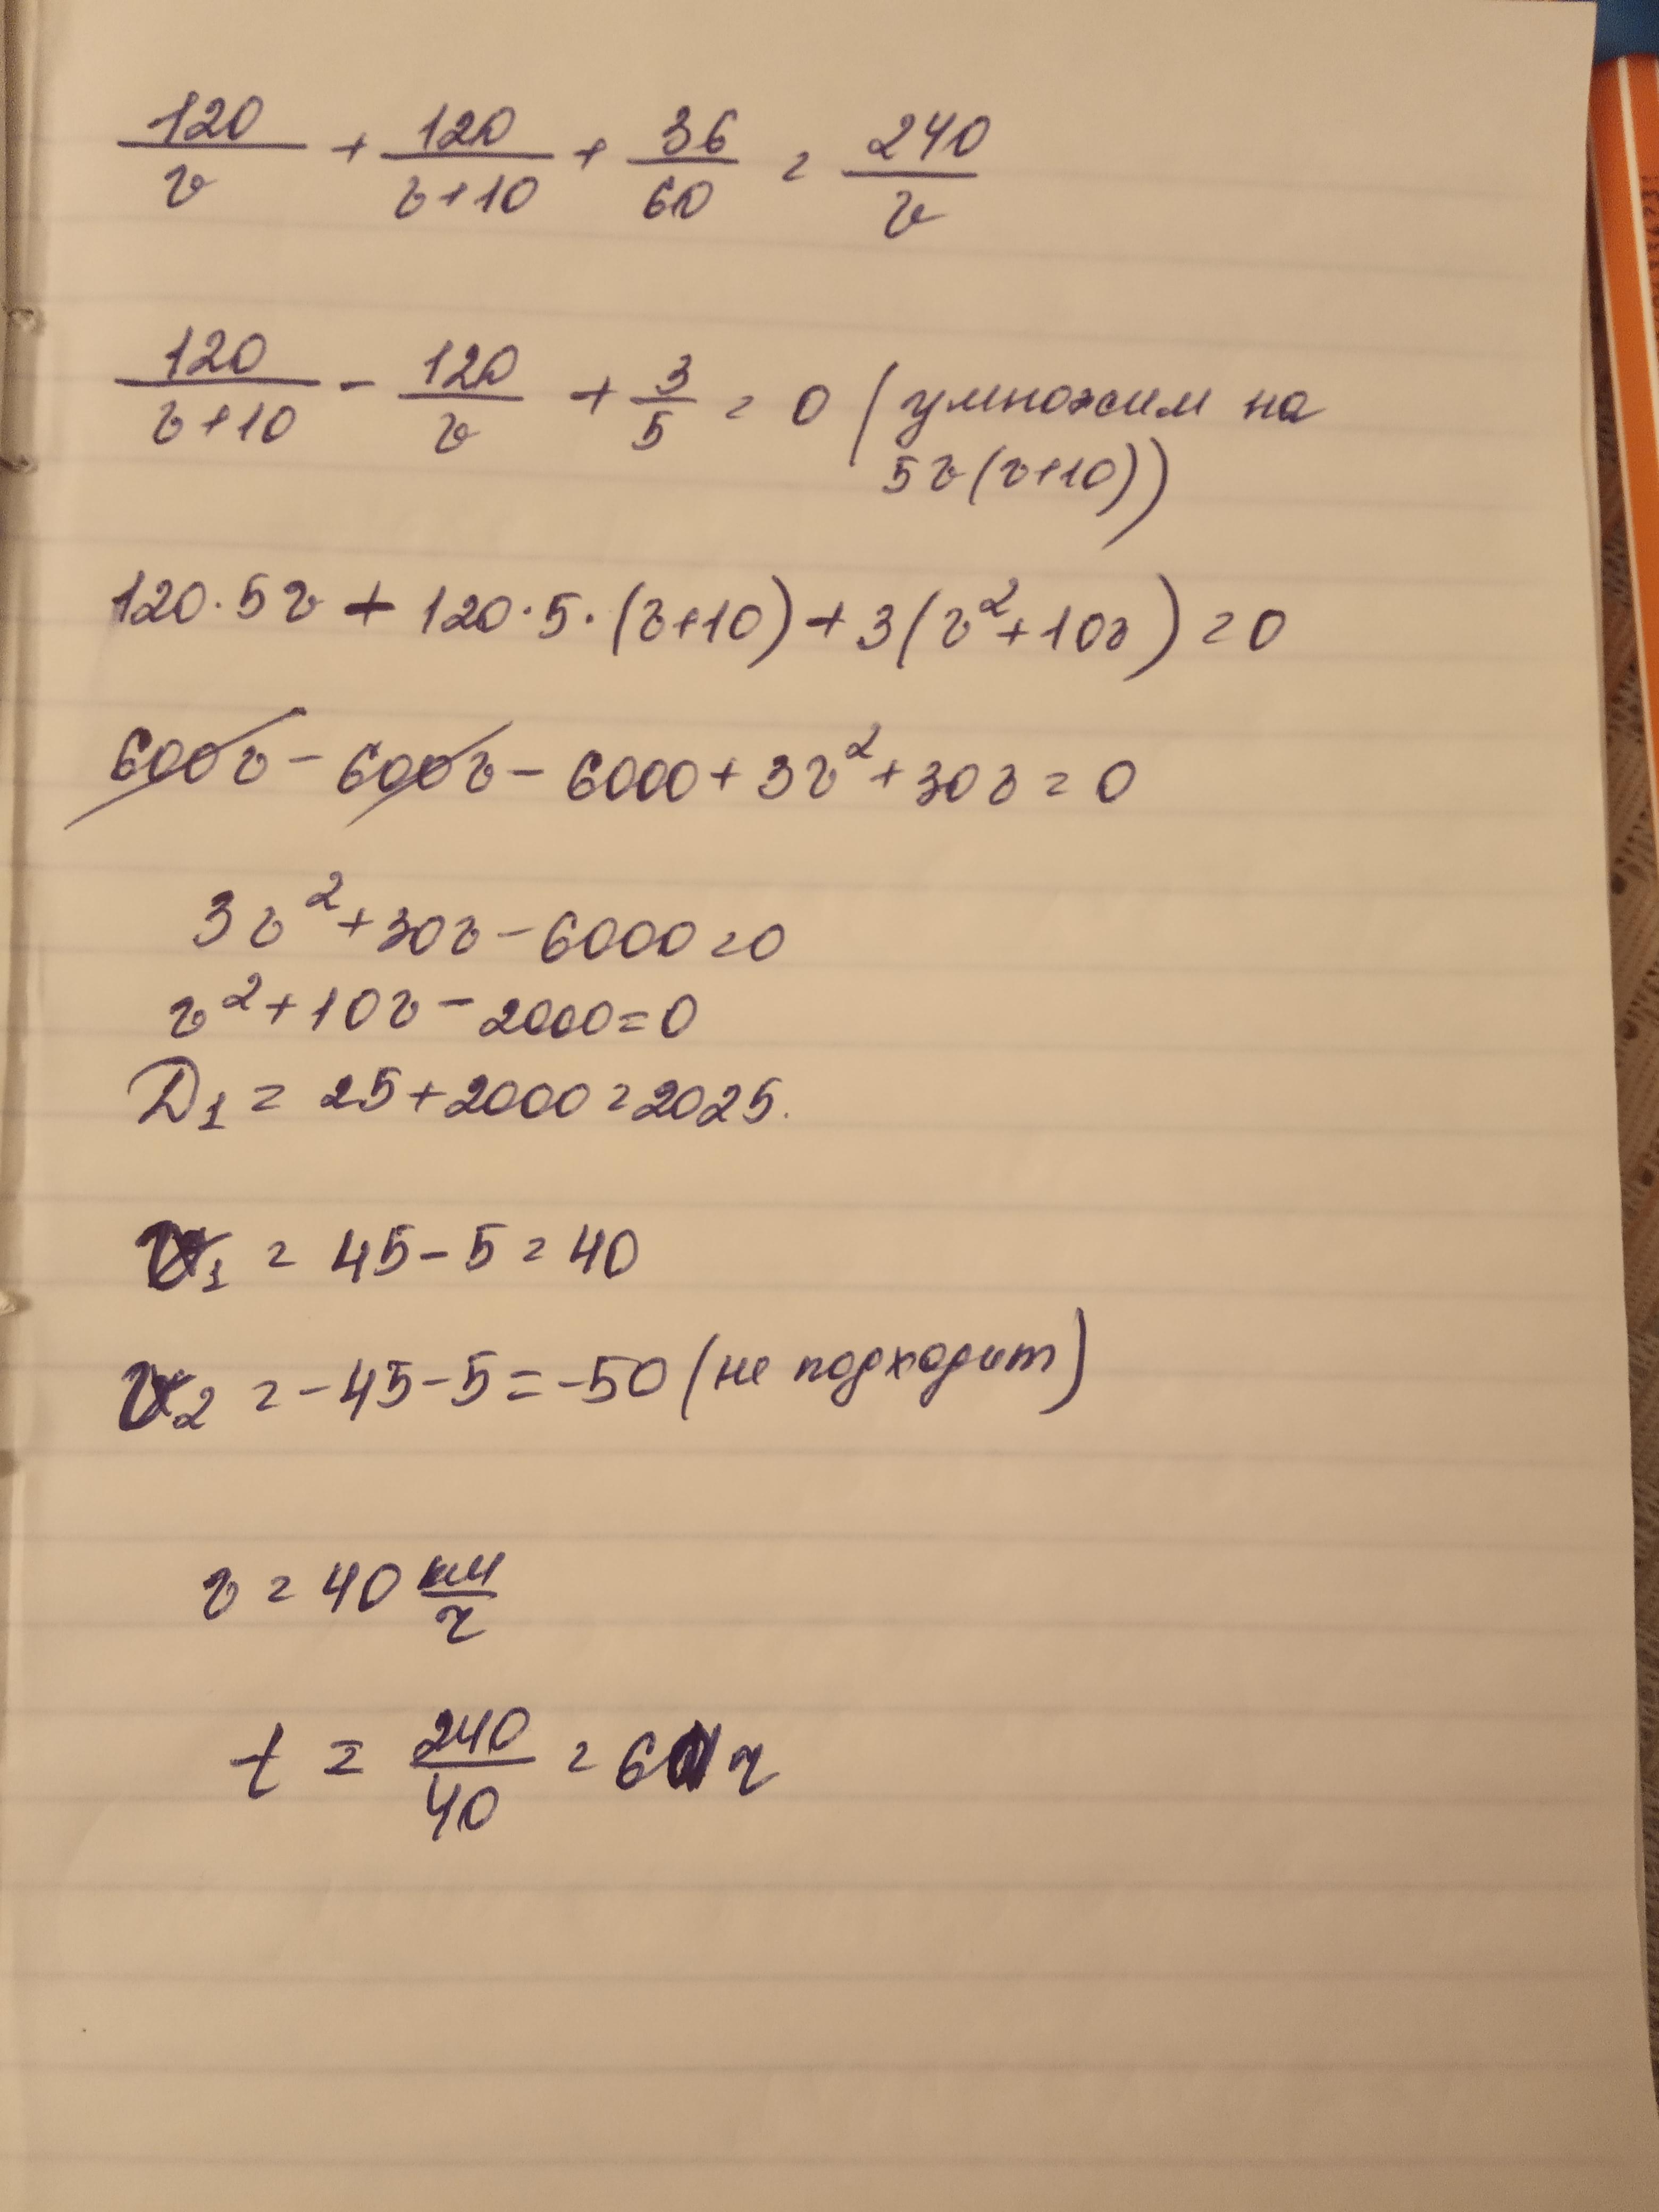 120/v + 120/(v+10) + 36/60 = 240/v
120/(v+10) - 120/v + 3/5 = 0 (умножим на
5v(v+10))
120·5v + 120·5·(v+10) + 3(v²+10v) = 0
600v - 600v - 6000 + 3v² + 30v = 0
3v² + 30v - 6000 = 0
v² + 10v - 2000 = 0
D₁ = 25 + 2000 = 2025.
v₁ = 45 - 5 = 40
v₂ = -45 - 5 = -50 (не подходит)
v = 40 км/ч
t = 240/40 = 6 ч